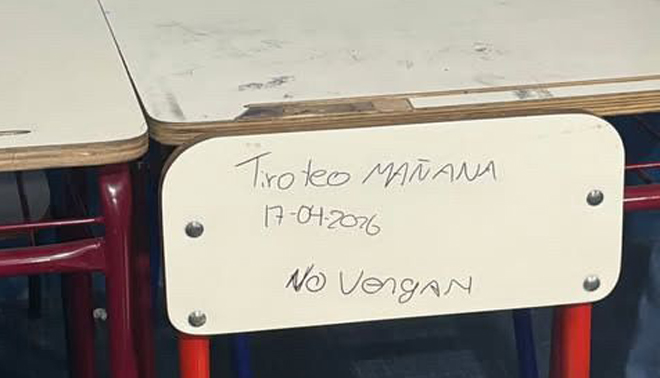 Tiroteo MAÑANA
17-04-2026
NO VENgAN